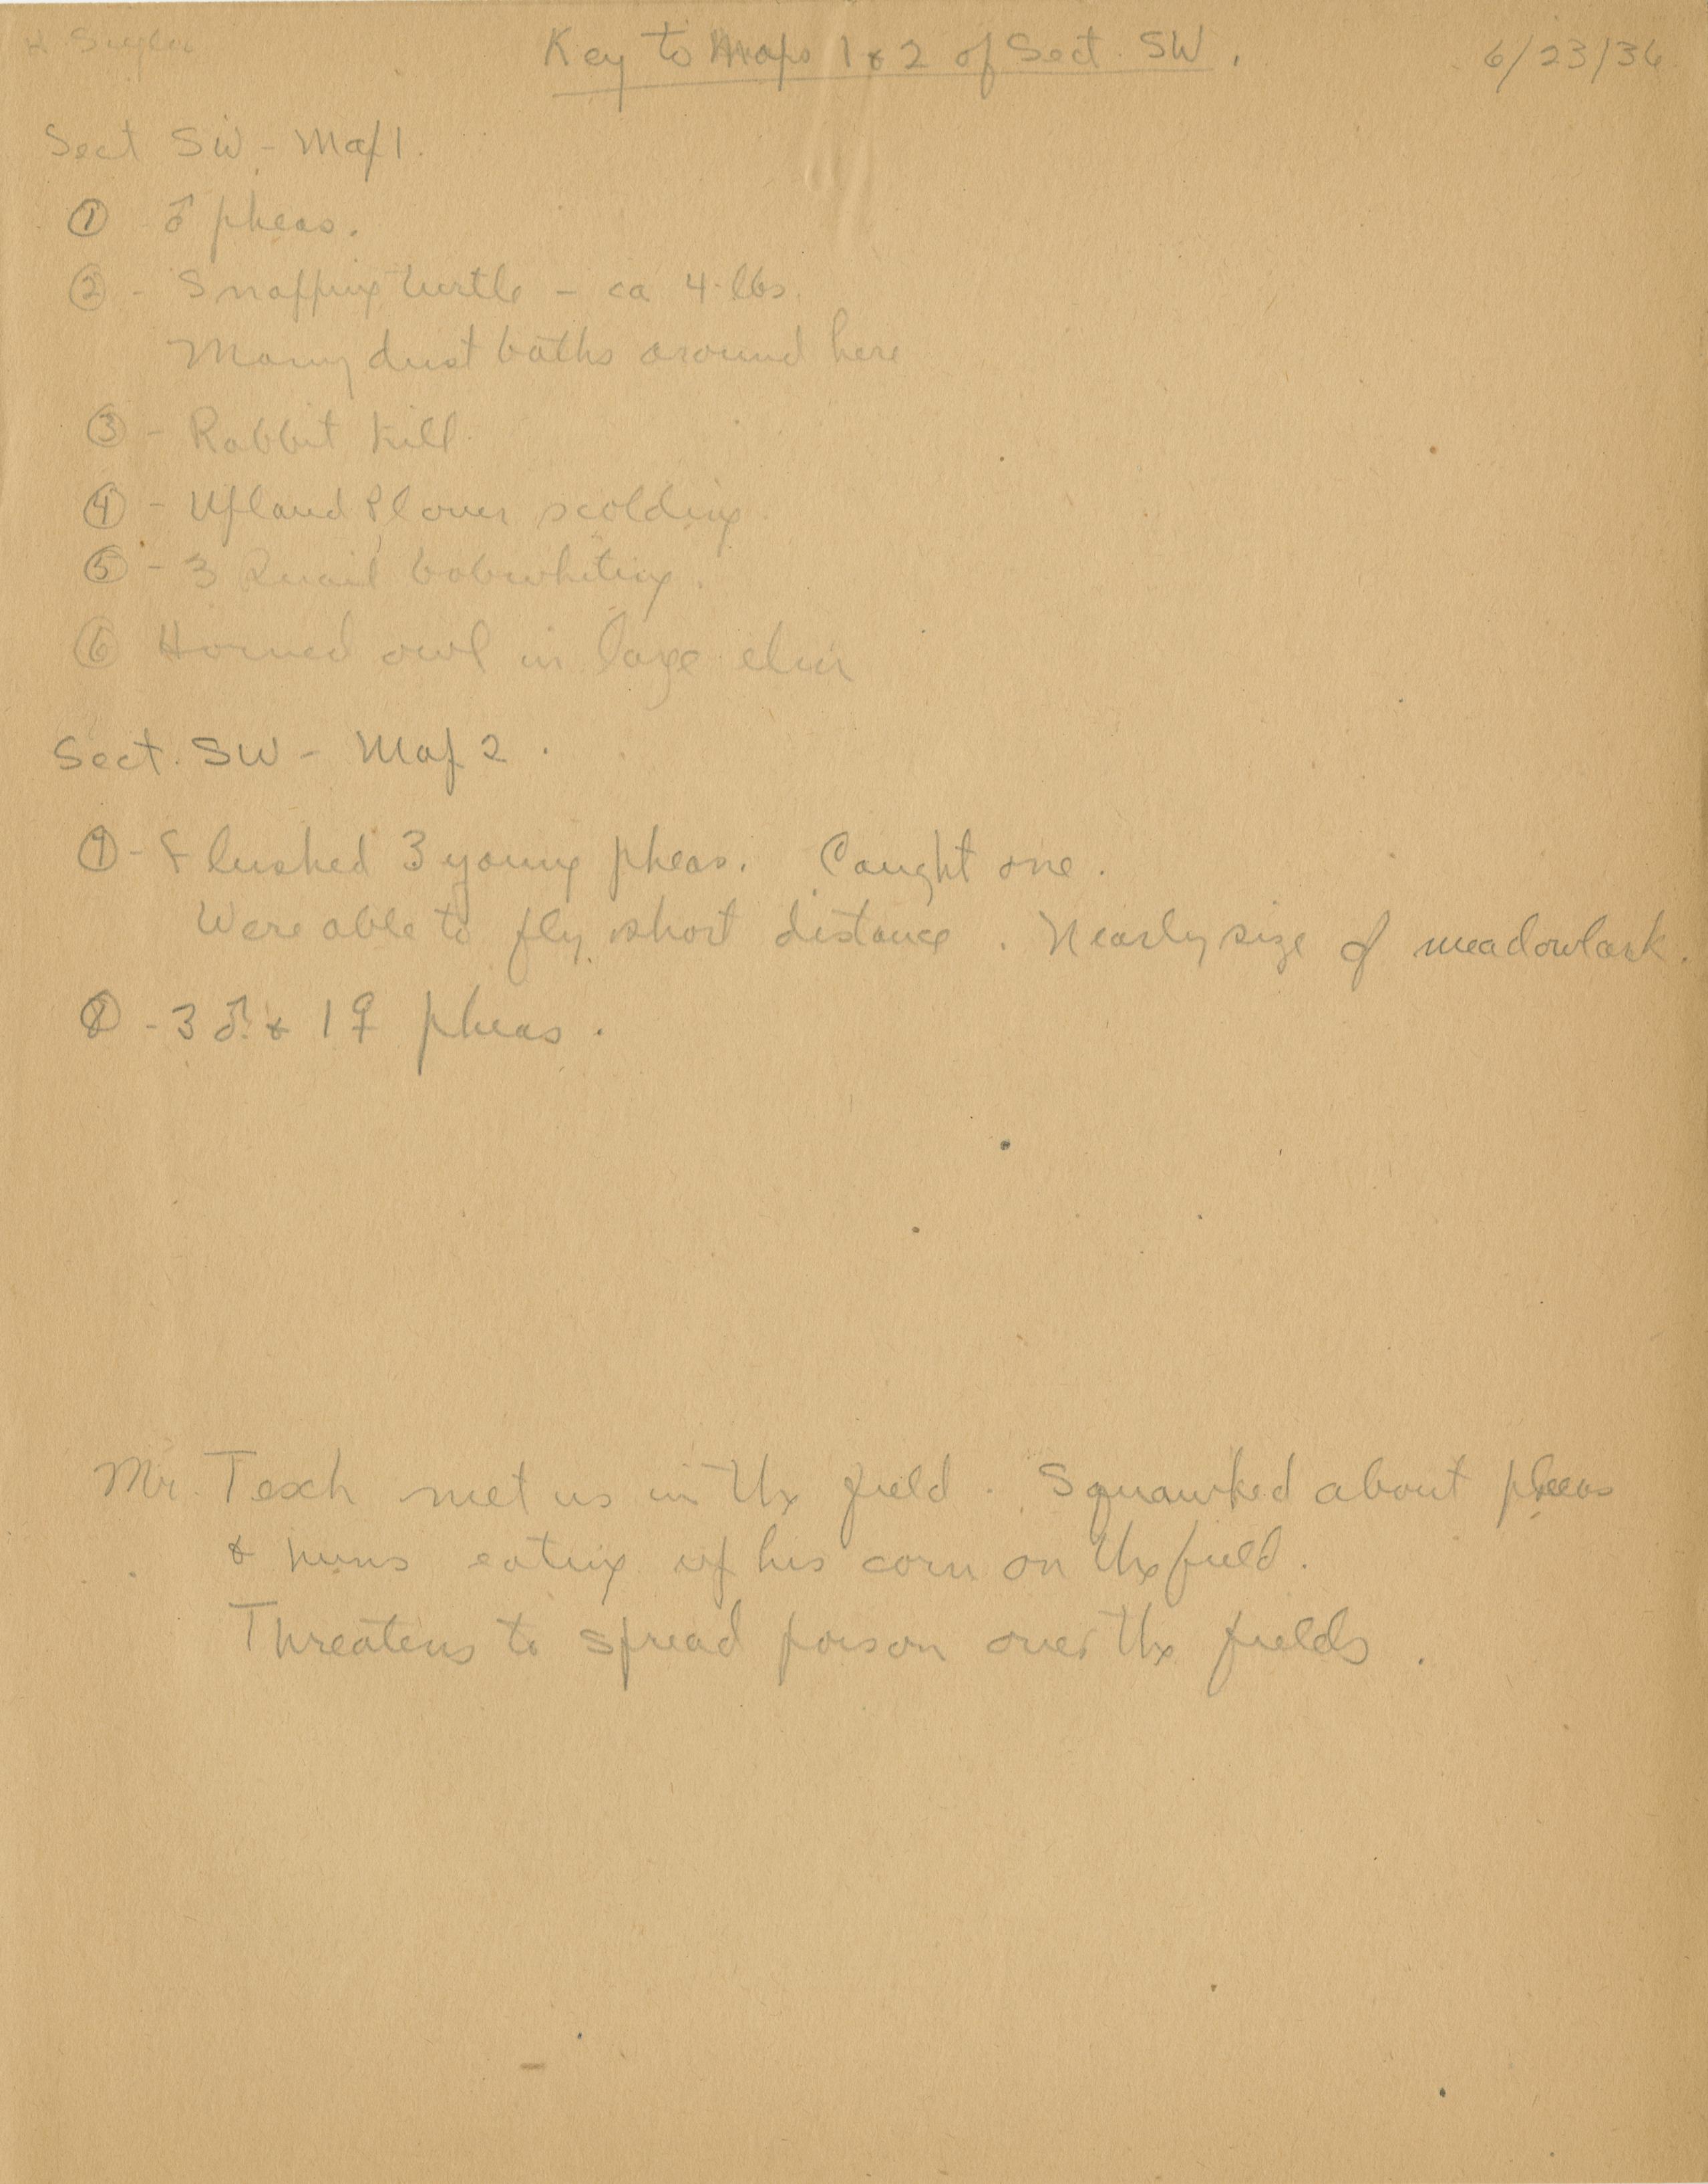 Key to Maps 1 & 2 of Sect. SW.
6/23/36
Sect SW - Map 1.
① ♂ pheas.
② - Snapping turtle - ca 4 lbs.
Many dust baths around here
③ - Rabbit kill
④ - Upland Plover scolding
⑤ - 3 Quail bobwhiting.
⑥ Horned owl in large elm
Sect. SW - Map 2.
⑦ - Flushed 3 young pheas. Caught one.
Were able to fly short distance. Nearly size of meadowlark.
⑧ - 3 ♂ & 1 ♀ pheas.
Mr. Tesch met us in the field. Squawked about pheas
& huns eating up his corn on the field.
Threatens to spread poison over the fields.